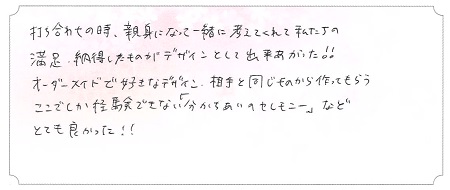 打ち合わせの時、親身になって一緒に考えてくれて私たちの
満足、納得したものがデザインとして出来あがった!!
オーダーメイドで好きなデザイン、相手と同じものから作ってもらう
ここでしか経験できない「分かちあいのセレモニー」など
とても良かった!!